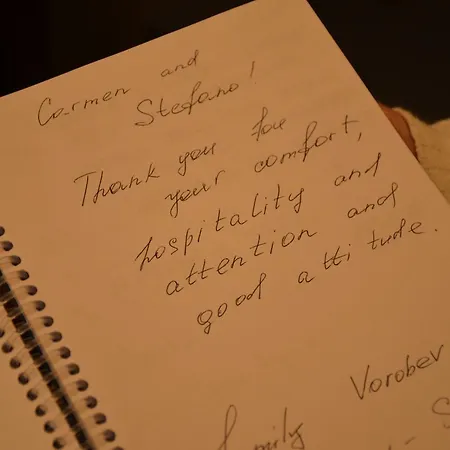 Carmen and
Stefano!
Thank you for
your comfort,
hospitality and
attention and
good attitude.
Family Vorobev